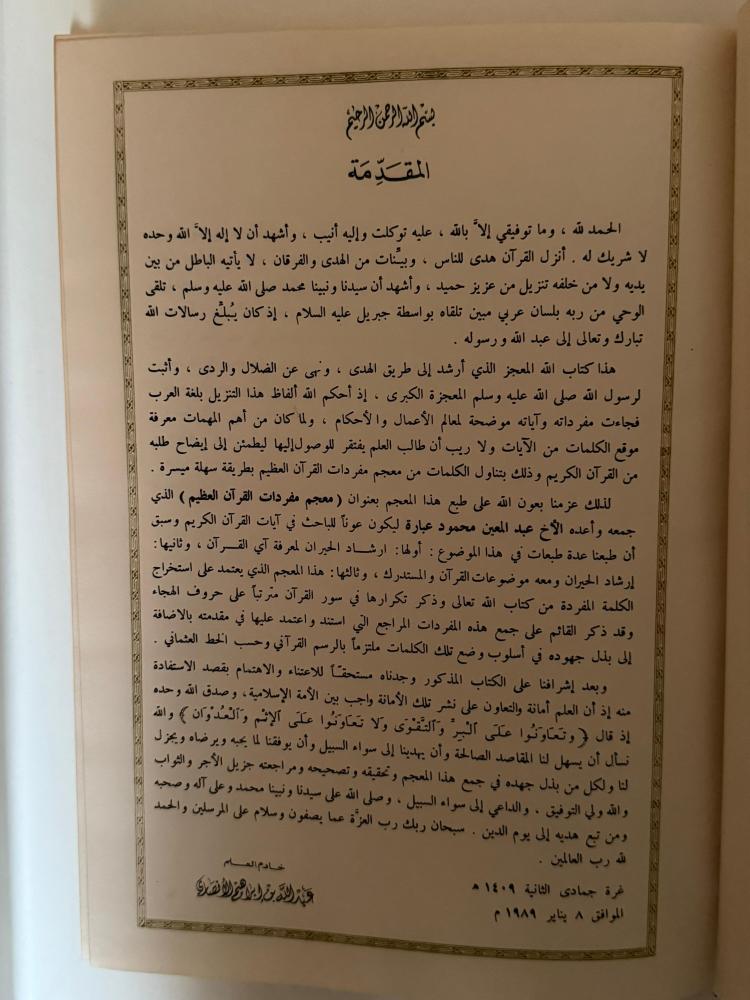 بسم الله الرحمن الرحيم
المقدِّمة
الحمد لله ، وما توفيقي إلاَّ بالله ، عليه توكلت وإليه أنيب ، وأشهد أن لا إله إلاَّ الله وحده
لا شريك له . أنزل القرآن هدى للناس ، وبيِّنات من الهدى والفرقان ، لا يأتيه الباطل من بين
يديه ولا من خلفه تنزيل من عزيز حميد ، وأشهد أن سيدنا ونبينا محمد صلى الله عليه وسلم ، تلقى
الوحي من ربه بلسان عربي مبين تلقاه بواسطة جبريل عليه السلام ، إذ كان يُبلِّغ رسالات الله
تبارك وتعالى إلى عبد الله ورسوله .
هذا كتاب الله المعجز الذي أرشد إلى طريق الهدى ، ونهى عن الضلال والردى ، وأثبت
لرسول الله صلى الله عليه وسلم المعجزة الكبرى ، إذ أحكم الله ألفاظ هذا التنزيل بلغة العرب
فجاءت مفرداته وآياته موضحة لمعالم الأعمال والأحكام ، ولما كان من أهم المهمات معرفة
موقع الكلمات من الآيات ولا ريب أن طالب العلم يفتقر للوصول إليها ليطمئن إلى إيضاح طلبه
من القرآن الكريم وذلك بتناول الكلمات من معجم مفردات القرآن العظيم بطريقة سهلة ميسرة .
لذلك عزمنا بعون الله على طبع هذا المعجم بعنوان (معجم مفردات القرآن العظيم) الذي
جمعه وأعده الأخ عبد المعين محمود عبارة ليكون عوناً للباحث في آيات القرآن الكريم وسبق
أن طبعنا عدة طبعات في هذا الموضوع : أولها: ارشاد الحيران لمعرفة آي القرآن ، وثانيها:
إرشاد الحيران ومعه موضوعات القرآن والمستدرك ، وثالثها: هذا المعجم الذي يعتمد على استخراج
الكلمة المفردة من كتاب الله تعالى وذكر تكرارها في سور القرآن مترتباً على حروف الهجاء
وقد ذكر القائم على جمع هذه المفردات المراجع التي استند واعتمد عليها في مقدمته بالاضافة
إلى بذل جهوده في أسلوب وضع تلك الكلمات ملتزماً بالرسم القرآني وحسب الخط العثماني .
وبعد إشرافنا على الكتاب المذكور وجدناه مستحقاً للاعتناء والاهتمام بقصد الاستفادة
منه إذ أن العلم أمانة والتعاون على نشر تلك الأمانة واجب بين الأمة الإسلامية، وصدق الله وحده
إذ قال ﴿ وَتَعَاوَنُوا عَلَى الْبِرِّ وَالتَّقْوَى وَلَا تَعَاوَنُوا عَلَى الإِثْمِ وَالْعُدْوَانِ ﴾ والله
نسأل أن يسهل لنا المقاصد الصالحة وأن يهدينا إلى سواء السبيل وأن يوفقنا لما يحبه ويرضاه ويجزل
لنا ولكل من بذل جهده في جمع هذا المعجم وتحقيقه وتصحيحه ومراجعته جزيل الأجر والثواب
والله ولي التوفيق . والداعي إلى سواء السبيل ، وصلى الله على سيدنا ونبينا محمد وعلى آله وصحبه
ومن تبع هديه إلى يوم الدين . سبحان ربك رب العزَّة عما يصفون وسلام على المرسلين والحمد
لله رب العالمين .
خادم العلم
عبد الله بن ابراهيم الأنصاري
غرة جمادى الثانية ١٤٠٩ هـ
الموافق ٨ يناير ١٩٨٩ م